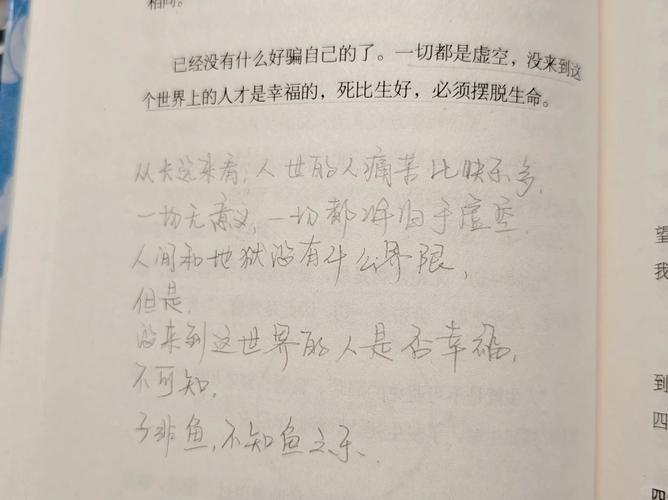 相同。
已经没有什么好骗自己的了。一切都是虚空，没来到这
个世界上的人才是幸福的，死比生好，必须摆脱生命。
从长远来看，人世的人痛苦比快乐多，
一切无意义，一切都将归于虚空
人间和地狱没有什么界限，
但是，
没来到这世界的人是否幸福，
不可知，
子非鱼，不知鱼之乐、
望
我
到
四